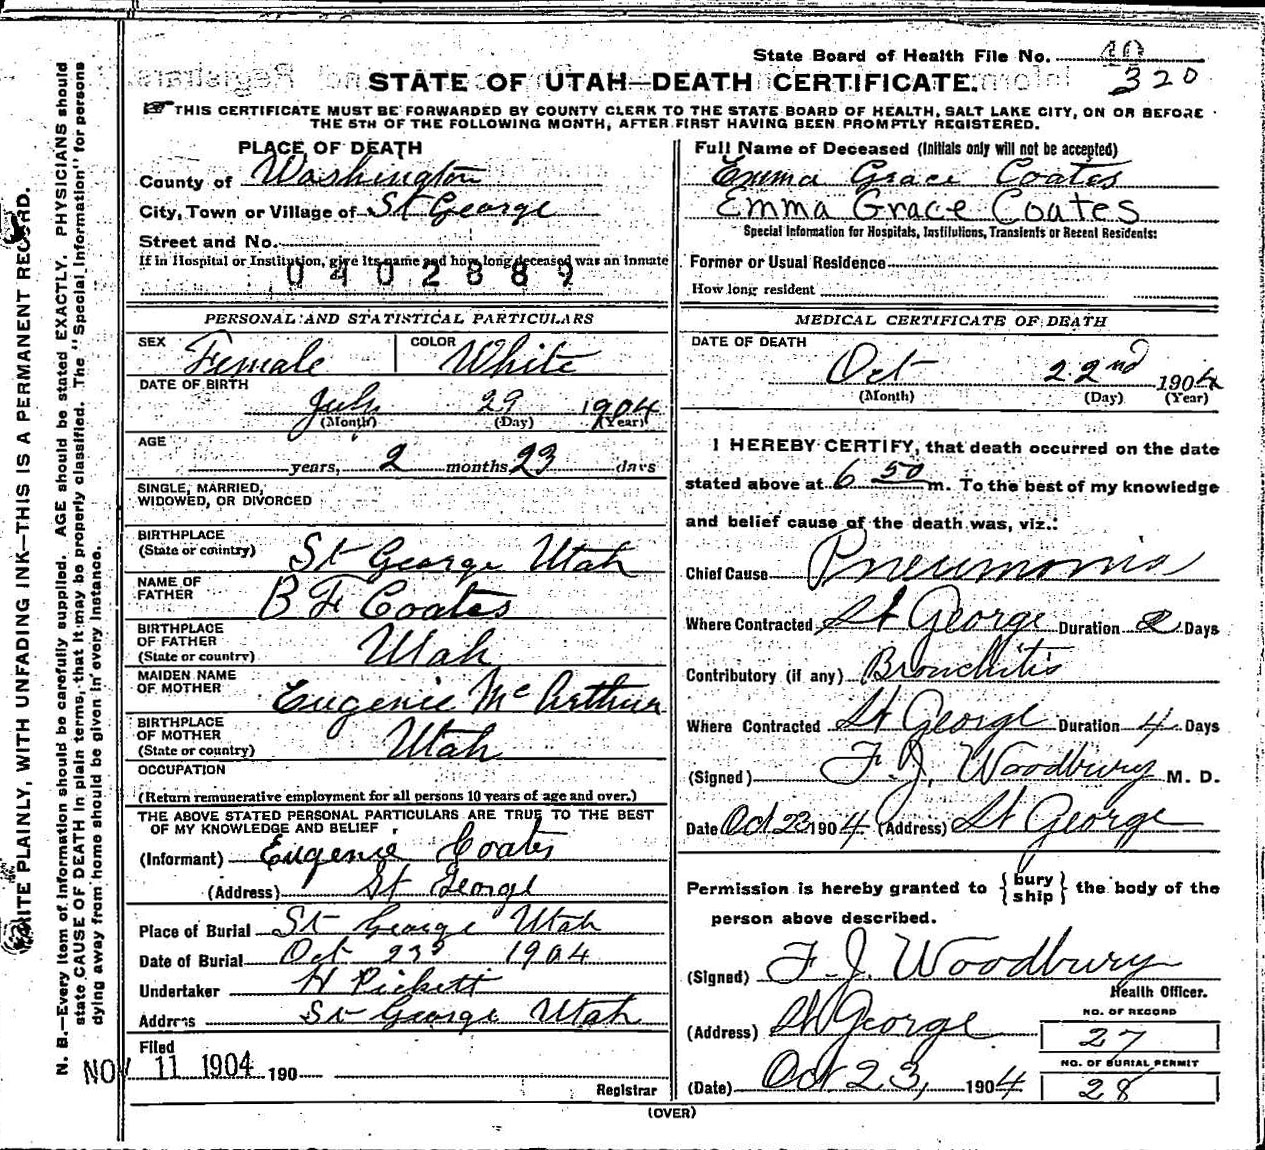 State Board of Health File No. 40
320
STATE OF UTAH—DEATH CERTIFICATE.
THIS CERTIFICATE MUST BE FORWARDED BY COUNTY CLERK TO THE STATE BOARD OF HEALTH, SALT LAKE CITY, ON OR BEFORE
THE 5TH OF THE FOLLOWING MONTH, AFTER FIRST HAVING BEEN PROMPTLY REGISTERED.
PLACE OF DEATH
County of Washington
City, Town or Village of St George
Street and No.
If in Hospital or Institution, give its name and how long deceased was an inmate
0402889
PERSONAL AND STATISTICAL PARTICULARS
SEX Female COLOR White
DATE OF BIRTH
July 29 1904
(Month) (Day) (Year)
AGE
years, 2 months 23 days
SINGLE, MARRIED,
WIDOWED, OR DIVORCED
BIRTHPLACE
(State or country) St George Utah
NAME OF
FATHER B F Coates
BIRTHPLACE
OF FATHER
(State or country) Utah
MAIDEN NAME
OF MOTHER Eugenie McArthur
BIRTHPLACE
OF MOTHER
(State or country) Utah
OCCUPATION
(Return remunerative employment for all persons 10 years of age and over.)
THE ABOVE STATED PERSONAL PARTICULARS ARE TRUE TO THE BEST
OF MY KNOWLEDGE AND BELIEF
(Informant) Eugenie Coates
(Address) St George
Place of Burial St George Utah
Date of Burial Oct 23d 1904
Undertaker H Pickett
Address St George Utah
Filed
NOV 11 1904 190
Registrar
Full Name of Deceased (Initials only will not be accepted)
Emma Grace Coates
Emma Grace Coates
Special Information for Hospitals, Institutions, Transients or Recent Residents:
Former or Usual Residence
How long resident
MEDICAL CERTIFICATE OF DEATH
DATE OF DEATH
Oct 22nd 1904
(Month) (Day) (Year)
I HEREBY CERTIFY, that death occurred on the date
stated above at 6 50 m. To the best of my knowledge
and belief cause of the death was, viz.:
Chief Cause Pneumonia
Where Contracted St George Duration 2 Days
Contributory (if any) Bronchitis
Where Contracted St George Duration 4 Days
(Signed) F. J. Woodbury M. D.
Date Oct 23 1904 (Address) St George
Permission is hereby granted to { bury
ship } the body of the
person above described.
(Signed) F. J. Woodbury
Health Officer.
(Address) St George
NO. OF RECORD
27
NO. OF BURIAL PERMIT
28
(Date) Oct 23, 1904
(OVER)
WRITE PLAINLY, WITH UNFADING INK—THIS IS A PERMANENT RECORD.
N. B.—Every item of information should be carefully supplied. AGE should be stated EXACTLY. PHYSICIANS should
state CAUSE OF DEATH in plain terms, that it may be properly classified. The "Special Information" for persons
dying away from home should be given in every instance.